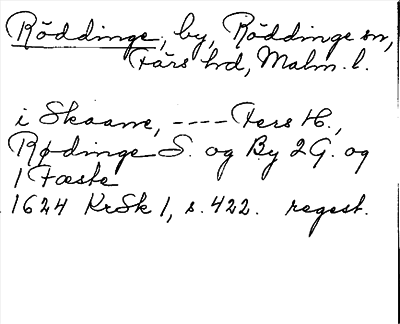 Röddinge, by, Röddinge sn,
Färs hd, Malm. l.
i Skaane, ---- Fers H.,
Rødinge S. og By 2 G. og
1 Fæste
1624 KrSk 1, s. 422. regest.